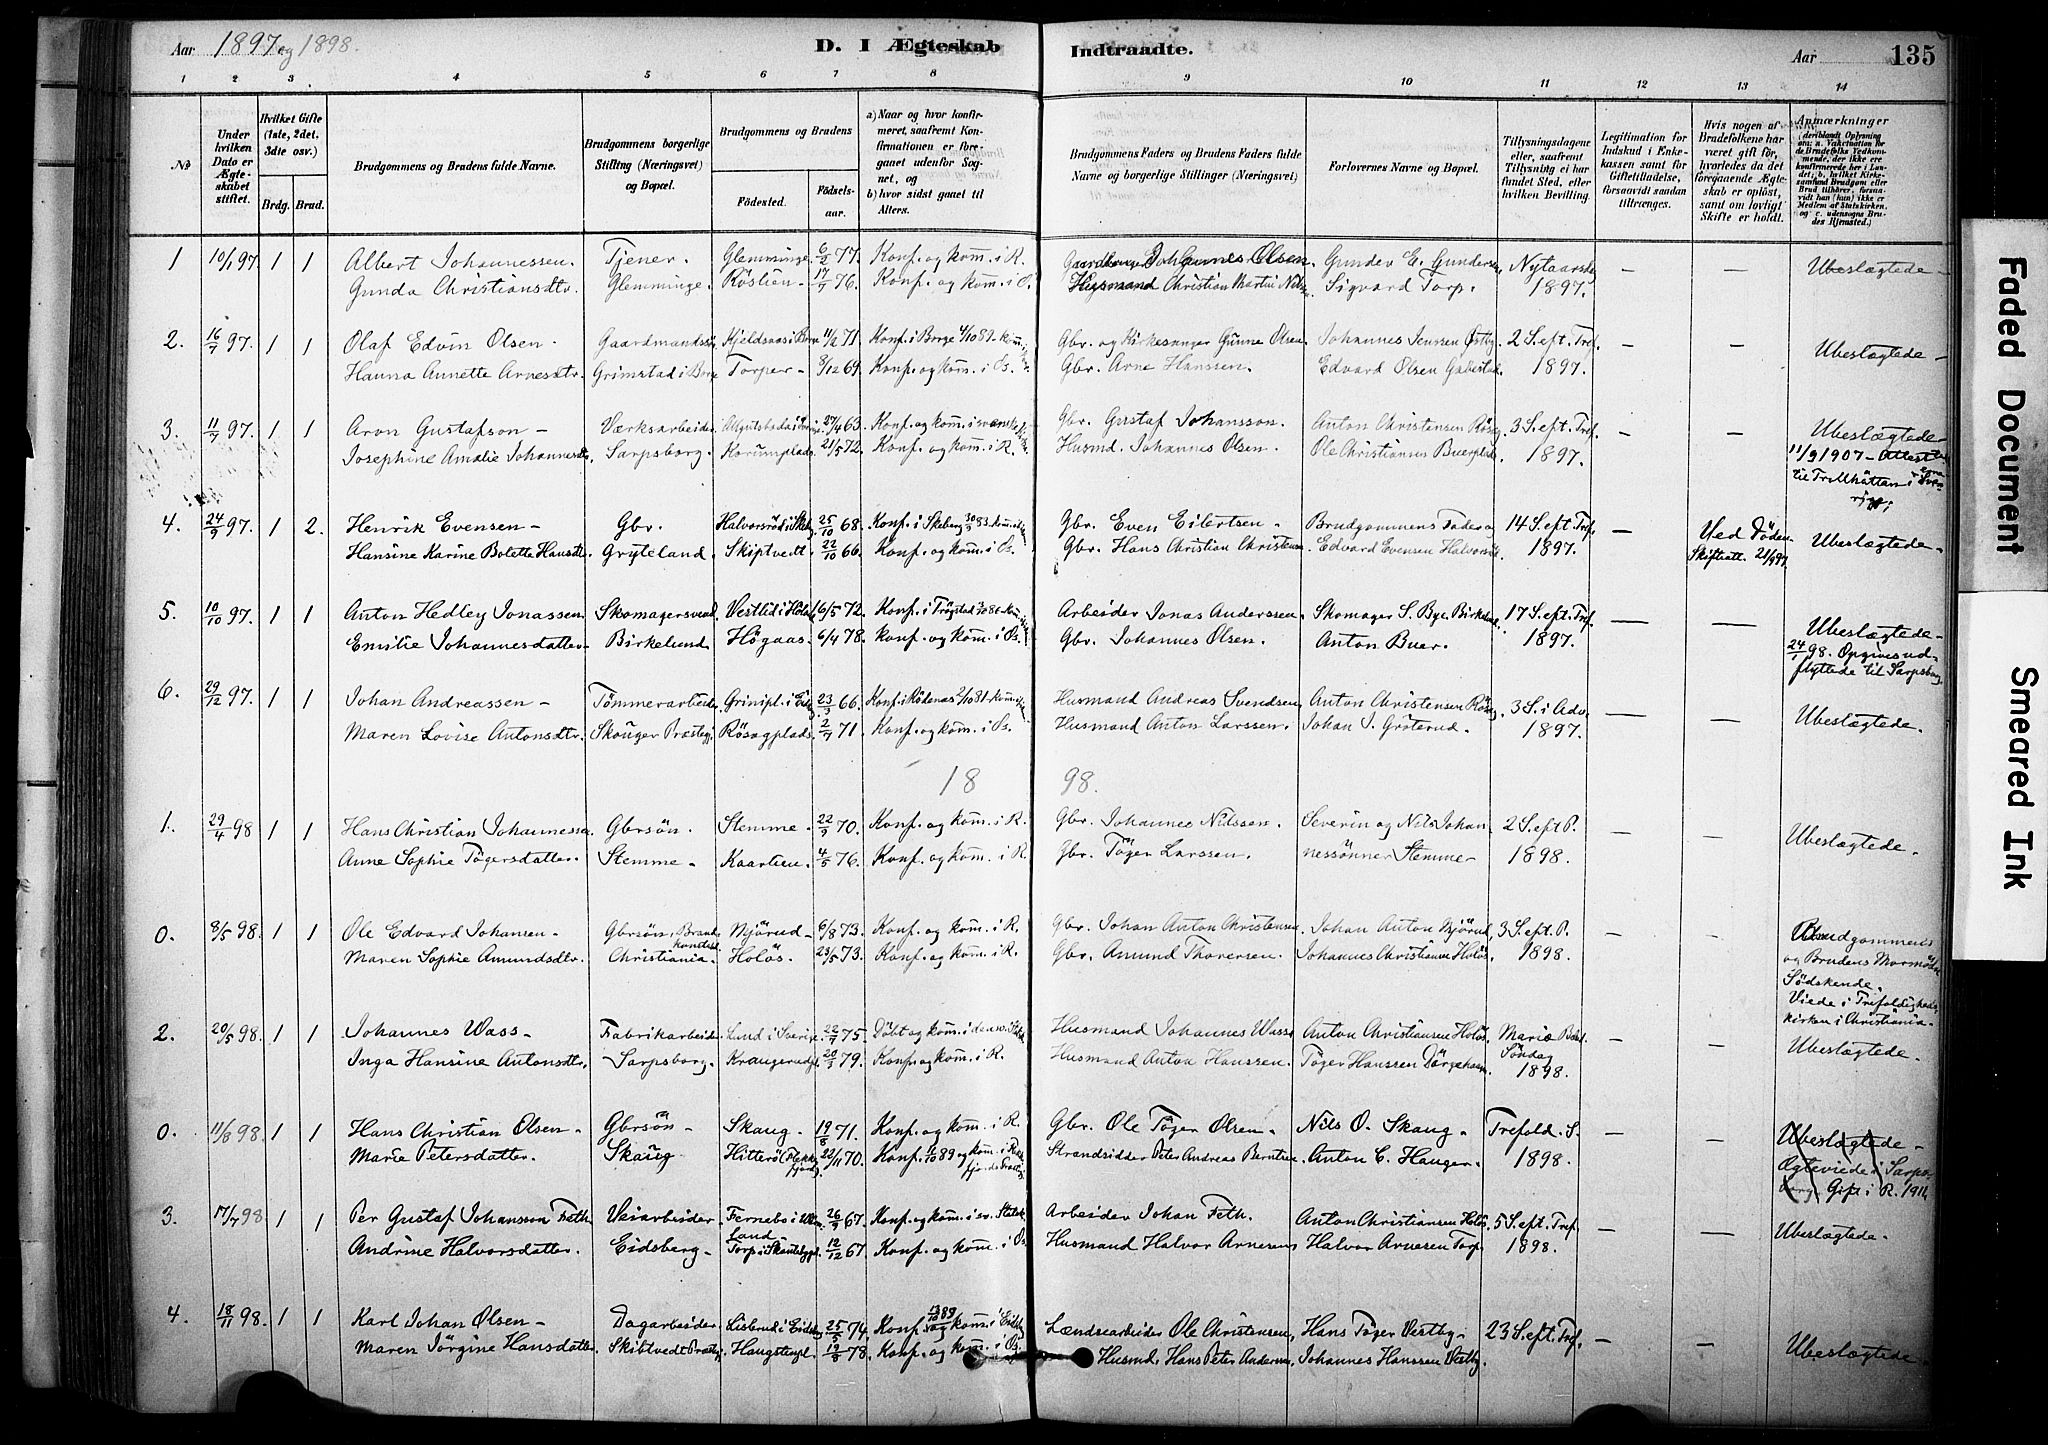 Aar 1897 og 1898. D. I Ægteskab Indtraadte. Aar 135
1 2 3 4 5 6 7 8 9 10 11 12 13 14
No
Under hvilken Dato er Ægteskabet stiftet.
Hvilket Gifte (1ste, 2det, 3die osv.)
Brdg. Brud.
Brudgommens og Brudens fulde Navne.
Brudgommens borgerlige Stilling (Næringsvei) og Bopæl.
Brudgommens og Brudens
Fødested. Fødselsaar.
a) Naar og hvor konfirmeret, saafremt Konfirmationen er foregaaet udenfor Sognet, og
b) hvor sidst gaaet til Alters.
Brudgommens Faders og Brudens Faders fulde Navne og borgerlige Stillinger (Næringsvei)
Forlovernes Navne og Bopæl.
Tillysningsdagene eller, saafremt Tillysning ei har fundet Sted, efter hvilken Bevilling.
Legitimation for Indskud i Enkekassen samt for Giftetilladelse, forsaavidt saadan tiltrænges.
Hvis nogen af Brudefolkene har været gift før, hvorledes da det foregaaende Ægteskab er opløst, samt om lovligt Skifte er holdt.
Anmærkninger
1 10/1 97. 1 1 Albert Johannessen. Tjener. Glemminge 6/2 77. Konf. og kom. i R. Johannes Olsen. Gunder E. Gundersen Nytaarsdag — — Ubeslægtede —
Gunda Christiansdtr. Glemminge. Röstien — 17/7 76. Konf. og kom. i Ös. Husmand Christian Martin Nilsen Sigvard Torp. 1897.
2. 16/7 97. 1 1 Olaf Edvin Olsen — Gaardmandssön Kjeldsaas i Borge 11/2 71. Konf. i Borge 4/10 87 — kom. Gbr. og Kirkesanger Gunne Olsen. Johannes Jensen Östby 2 S. eft. Tref. — — Ubeslægtede —
Hanna Annette Arnesdtr. Grimstad i Borge Torper — 3/12 69. Konf. og kom. i Ös. Gbr. Arne Hanssen. Edvard Olsen Gabestad 1897.
3. 11/7 97. 1 1 Aron Gustafson — Værksarbeider. 27/4 63. Konf. og kom. i svenske Gbr. Gustaf Johansson. Anton Christensen Rösæg 3 S. eft. Tref. — — Ubeslægtede —
Josephine Amalie Johannesdtr. Sarpsborg. 21/5 72. Konf. og kom. i R. Husmd. Johannes Olsen. Ole Christiansen 1897. 11/9 1907 — Attest
til Trollhättan i
4. 24/9 97. 1 2. Henrik Evensen — Gbr. Halvorsröd i Skeberg 25/10 68. Konf. i Skeberg 30/9 83. Gbr. Even Eilertsen — Brudgommens Fader og 14 S. eft. Tref. — Ved Döden. Ubeslægtede —
Hansine Karine Bolette Hansdtr. Gryteland Skiptvedt 22/10 66. Konf. og kom. i Ös. Gbr. Hans Christian Christensen Edvard Evensen 1897. Skifteatt. 21/9 97.
5. 10/10 97. 1 1 Anton Hedley Jonassen Skomagersvend Vestlid i Höland 6/5 72. Konf. i Trögstad Arbeider Jonas Anderssen. Skomager S. Bye. Birkelund. 17 S. eft. Tref. — — Ubeslægtede —
Emilie Johannesdatter — Birkelund Högaas. 6/4 78. Konf. og kom. i Ös. Gbr. Johannes Olsen. Anton Buer. 1897. 24/1 98. Opgives udflyttede til Sarpsborg
6. 29/12 97. 1 1 Johan Andreassen — Tömmerarbeider. Grinipl. i Eidsb. 23/3 66. Konf. i Rödenæs 2/10 81 Husmand Andreas Svendsen Anton Christensen Rösæg. 3 S. i Adv. — — Ubeslægtede.
Maren Lovise Antonsdtr. Skouger Præstegj. Rösægplads 2/7 71 Konf. og kom. i Ös. Husmand Anton Larssen Johan J. Gröterud. 1897.
18 98.
1. 29/4 98 1 1 Hans Christian Johannessen Gbrsön. Stemme — 22/9 70. Konf. og kom. i R. Gbr. Johannes Nilssen. Severin og Nils Johan- 2 S. eft. P. — — Ubeslægtede.
Anne Sophie Tögersdatter. Stemme — Kaartien. 4/5 76. Konf. og kom. i R. Gbr. Töger Larssen. nessönner Stemme — 1898.
0. 8/5 98. 1 1 Ole Edvard Johansen — Gbrsön. Mjörud — 6/8 73. Konf. og kom. i R. Gbr. Johan Anton Christensen Johan Anton Mjörud, 3 S. eft. P. — — Brudgommens
Maren Sophie Amundsdtr. Christiania. Holös. 23/5 73. Konf. og kom. i R. Gbr. Amund Thoresen. Johannes Christiansen Holös. 1898. og Brudens Mormödre
Södskende.
Viede i Trefoldigheds-
kirken i Christiania —
2. 20/5 98. 1 1 Johannes Wass — Fabrikarbeider Lund i Sverige 22/7 75. Döbt og kom. i den sv. Husmand Johannes Wass Anton Christiansen Holös Mariæ Bud. — — Ubeslægtede.
Inga Hansine Antonsdtr. Sarpsborg. Krangerud 20/3 79. Konf. og kom. i R. Husmand Anton Hanssen. Töger Hanssen Söndag 1898.
0. 11/8 98. 1 1 Hans Christian Olsen — Gbrsön — Skaug — 19/8 71. Konf. og kom. i R. Gbr. Ole Töger Olsen — Nils O. Skaug — Trefold. S. — — Ubeslægtede —
Marie Petersdatter. Skaug. Hitterö (Flekkefjord) 22/11 70. Konf. 1/10 89 og kom. i Strandsidder Peter Andreas Berntsen Anton C. Hauger. 1898. Ægteviede i Sarps-
borg. Gift i R. 1911.
3. 17/7 98. 1 1 Per Gustaf Johansson Feth Veiarbeider. Fernebo i 26/9 67. Konf. og kom. i sv. Arbeider Johan Feth. Anton Christiansen Holös 5 S. eft. Tref. — — Ubeslægtede.
Andrine Halvorsdatter. Eidsberg — Torp i 12/12 67. Konf. og kom. i Ös. Husmand Halvor Arnesen Halvor Arnesen Torp. 1898.
4. 18/11 98. 1 1 Karl Johan Olsen — Dagarbeider 25/5 74. Konf. kom. i Eidsb. Lændsearbeider Ole Christensen, Hans Töger Vestby — 23 S. eft. Tref. — — Ubeslægtede.
Maren Jörgine Hansdatter. Skibtvedt Præstegj. Haugsten 19/8 78. Konf. og kom. i Ös. Husmd. Hans Peter Andersen Johannes Hanssen Vestby.
Faded Document
Smeared Ink